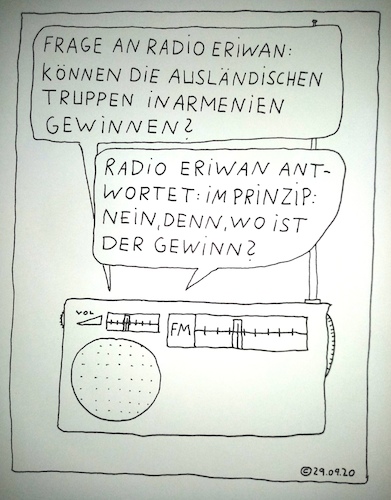 FRAGE AN RADIO ERIWAN:
KÖNNEN DIE AUSLÄNDISCHEN
TRUPPEN IN ARMENIEN
GEWINNEN?
RADIO ERIWAN ANT-
WORTET: IM PRINZIP:
NEIN, DENN, WO IST
DER GEWINN?
VOL
FM
©29.09.20